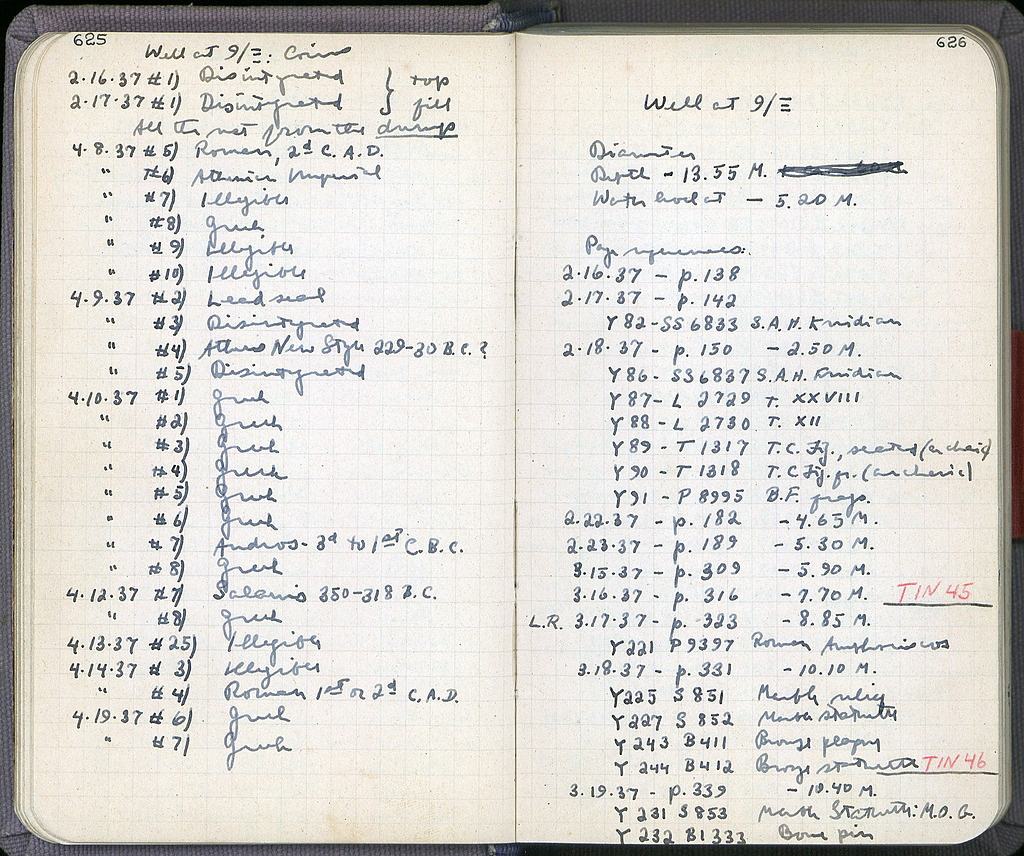 625
Well at 9/Ξ: Coins
2.16.37 #1) Disintegrated } top
2.17.37 #1) Disintegrated } fill
All the rest from the dump
4.8.37 #5) Roman, 2d C. A.D.
" #6) Athenian Imperial
" #7) Illegible
" #8) Greek
" #9) Illegible
" #10) Illegible
4.9.37 #2) Lead seal
" #3) Disintegrated
" #4) Athens New Style 229-30 B.C.?
" #5) Disintegrated
4.10.37 #1) Greek
" #2) Greek
" #3) Greek
" #4) Greek
" #5) Greek
" #6) Greek
" #7) Andros - 3d to 1st C.B.C.
" #8) Greek
4.12.37 #7) Salamis 350-318 B.C.
" #8) Greek
4.13.37 #25) Illegible
4.14.37 #3) Illegible
" #4) Roman 1st or 2d C.A.D.
4.19.37 #6) Greek
" #7) Greek
626
Well at 9/Ξ
Diameter
Depth - 13.55 M.
Water level at - 5.20 M.
Page references:
2.16.37 - p. 138
2.17.37 - p. 142
Y 82 - SS 6833 S.A.H. Knidian
2.18.37 - p. 150 - 2.50 M.
Y 86 - SS 6837 S.A.H. Knidian
Y 87 - L 2729 T. XXVIII
Y 88 - L 2730 T. XII
Y 89 - T 1317 T.C. Fig., seated (archaic)
Y 90 - T 1318 T.C. Fig. fr. (archaic)
Y 91 - P 8995 B.F. frags.
2.22.37 - p. 182 - 4.65 M.
2.23.37 - p. 189 - 5.30 M.
3.15.37 - p. 309 - 5.90 M.
3.16.37 - p. 316 - 7.70 M. TIN 45
L.R. 3.17.37 - p. 323 - 8.85 M.
Y 221 P 9397 Roman Amphoriscos
3.18.37 - p. 331 - 10.10 M.
Y 225 S 851 Marble relief
Y 227 S 852 Marble statuette
Y 243 B 411 Bronze
Y 244 B 412 Bronze statuette TIN 46
3.19.37 - p. 339 - 10.40 M.
Y 231 S 853 Marble Statuette: M.O.G.
Y 232 BI 333 Bone pin